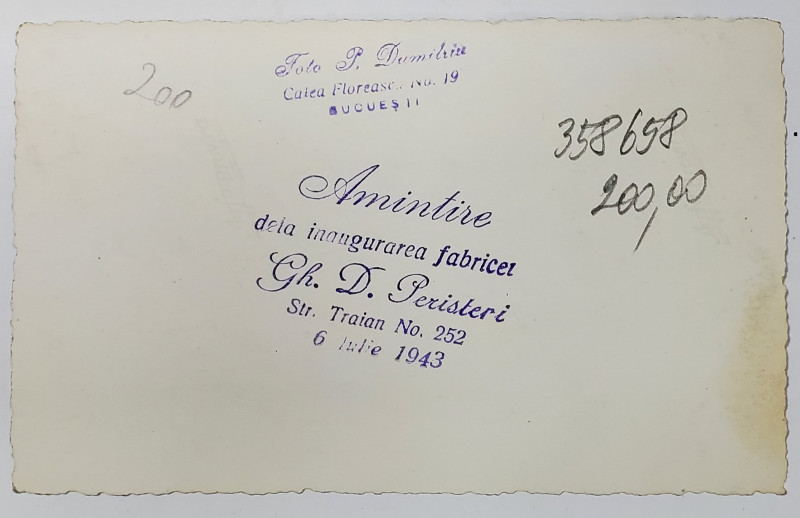 Foto P. Dumitriu
Calea Floreasca No. 19
BUCUEȘTI
200
358658
200,00
Amintire
dela inaugurarea fabricei
Gh. D. Peristeri
Str. Traian No. 252
6 Iulie 1943